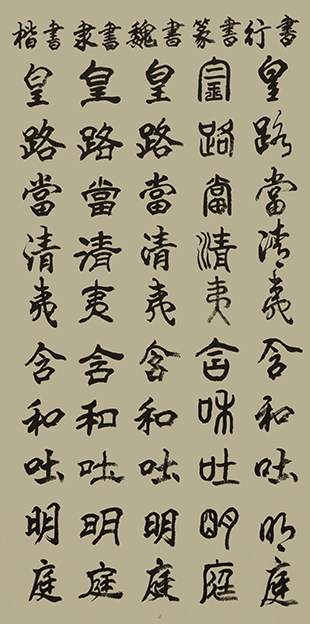 楷書 隶書 魏書 篆書 行書
皇 皇 皇 皇 皇
路 路 路 路 路
當 當 當 當 當
清 清 清 清 清
夷 夷 夷 夷 夷
含 含 含 含 含
和 和 和 和 和
吐 吐 吐 吐 吐
明 明 明 明 明
庭 庭 庭 庭 庭